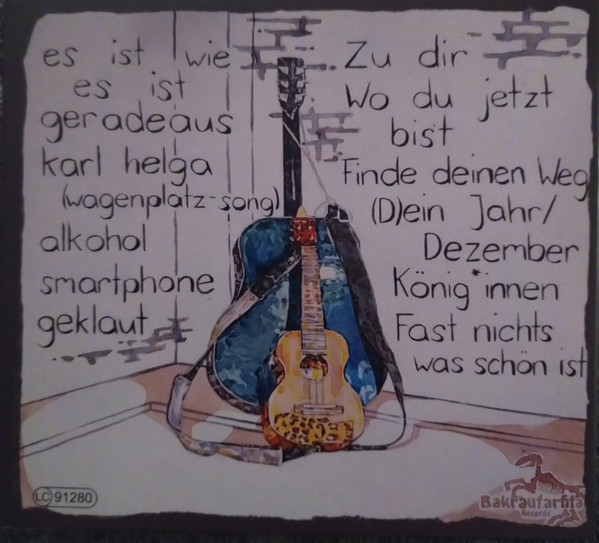 es ist wie
es ist
geradeaus
karl helga
(wagenplatz-song)
alkohol
smartphone
geklaut
Zu dir
Wo du jetzt
bist
Finde deinen Weg
(D)ein Jahr/
Dezember
König*innen
Fast nichts
was schön ist
LC 91280
Bakraufarfita
Records